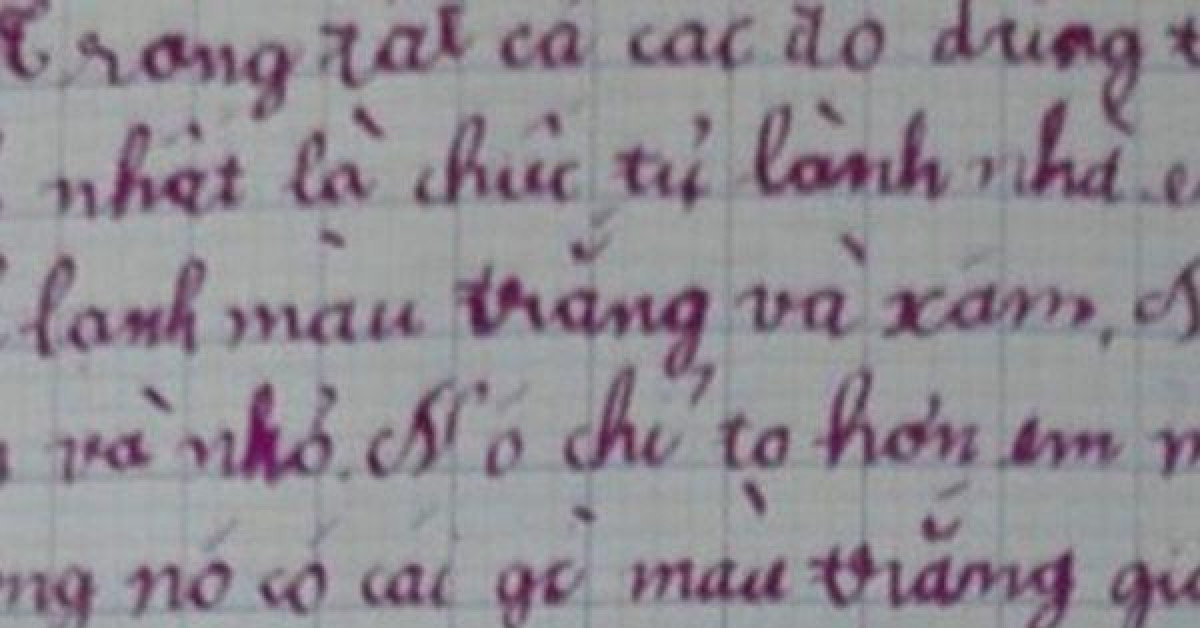 Trong tất cả các đồ dùng
nhất là chiếc tủ lành nhà
lạnh màu trắng và xám.
và nhỏ. Nó chỉ to hơn em
nó có cái gì màu trắng